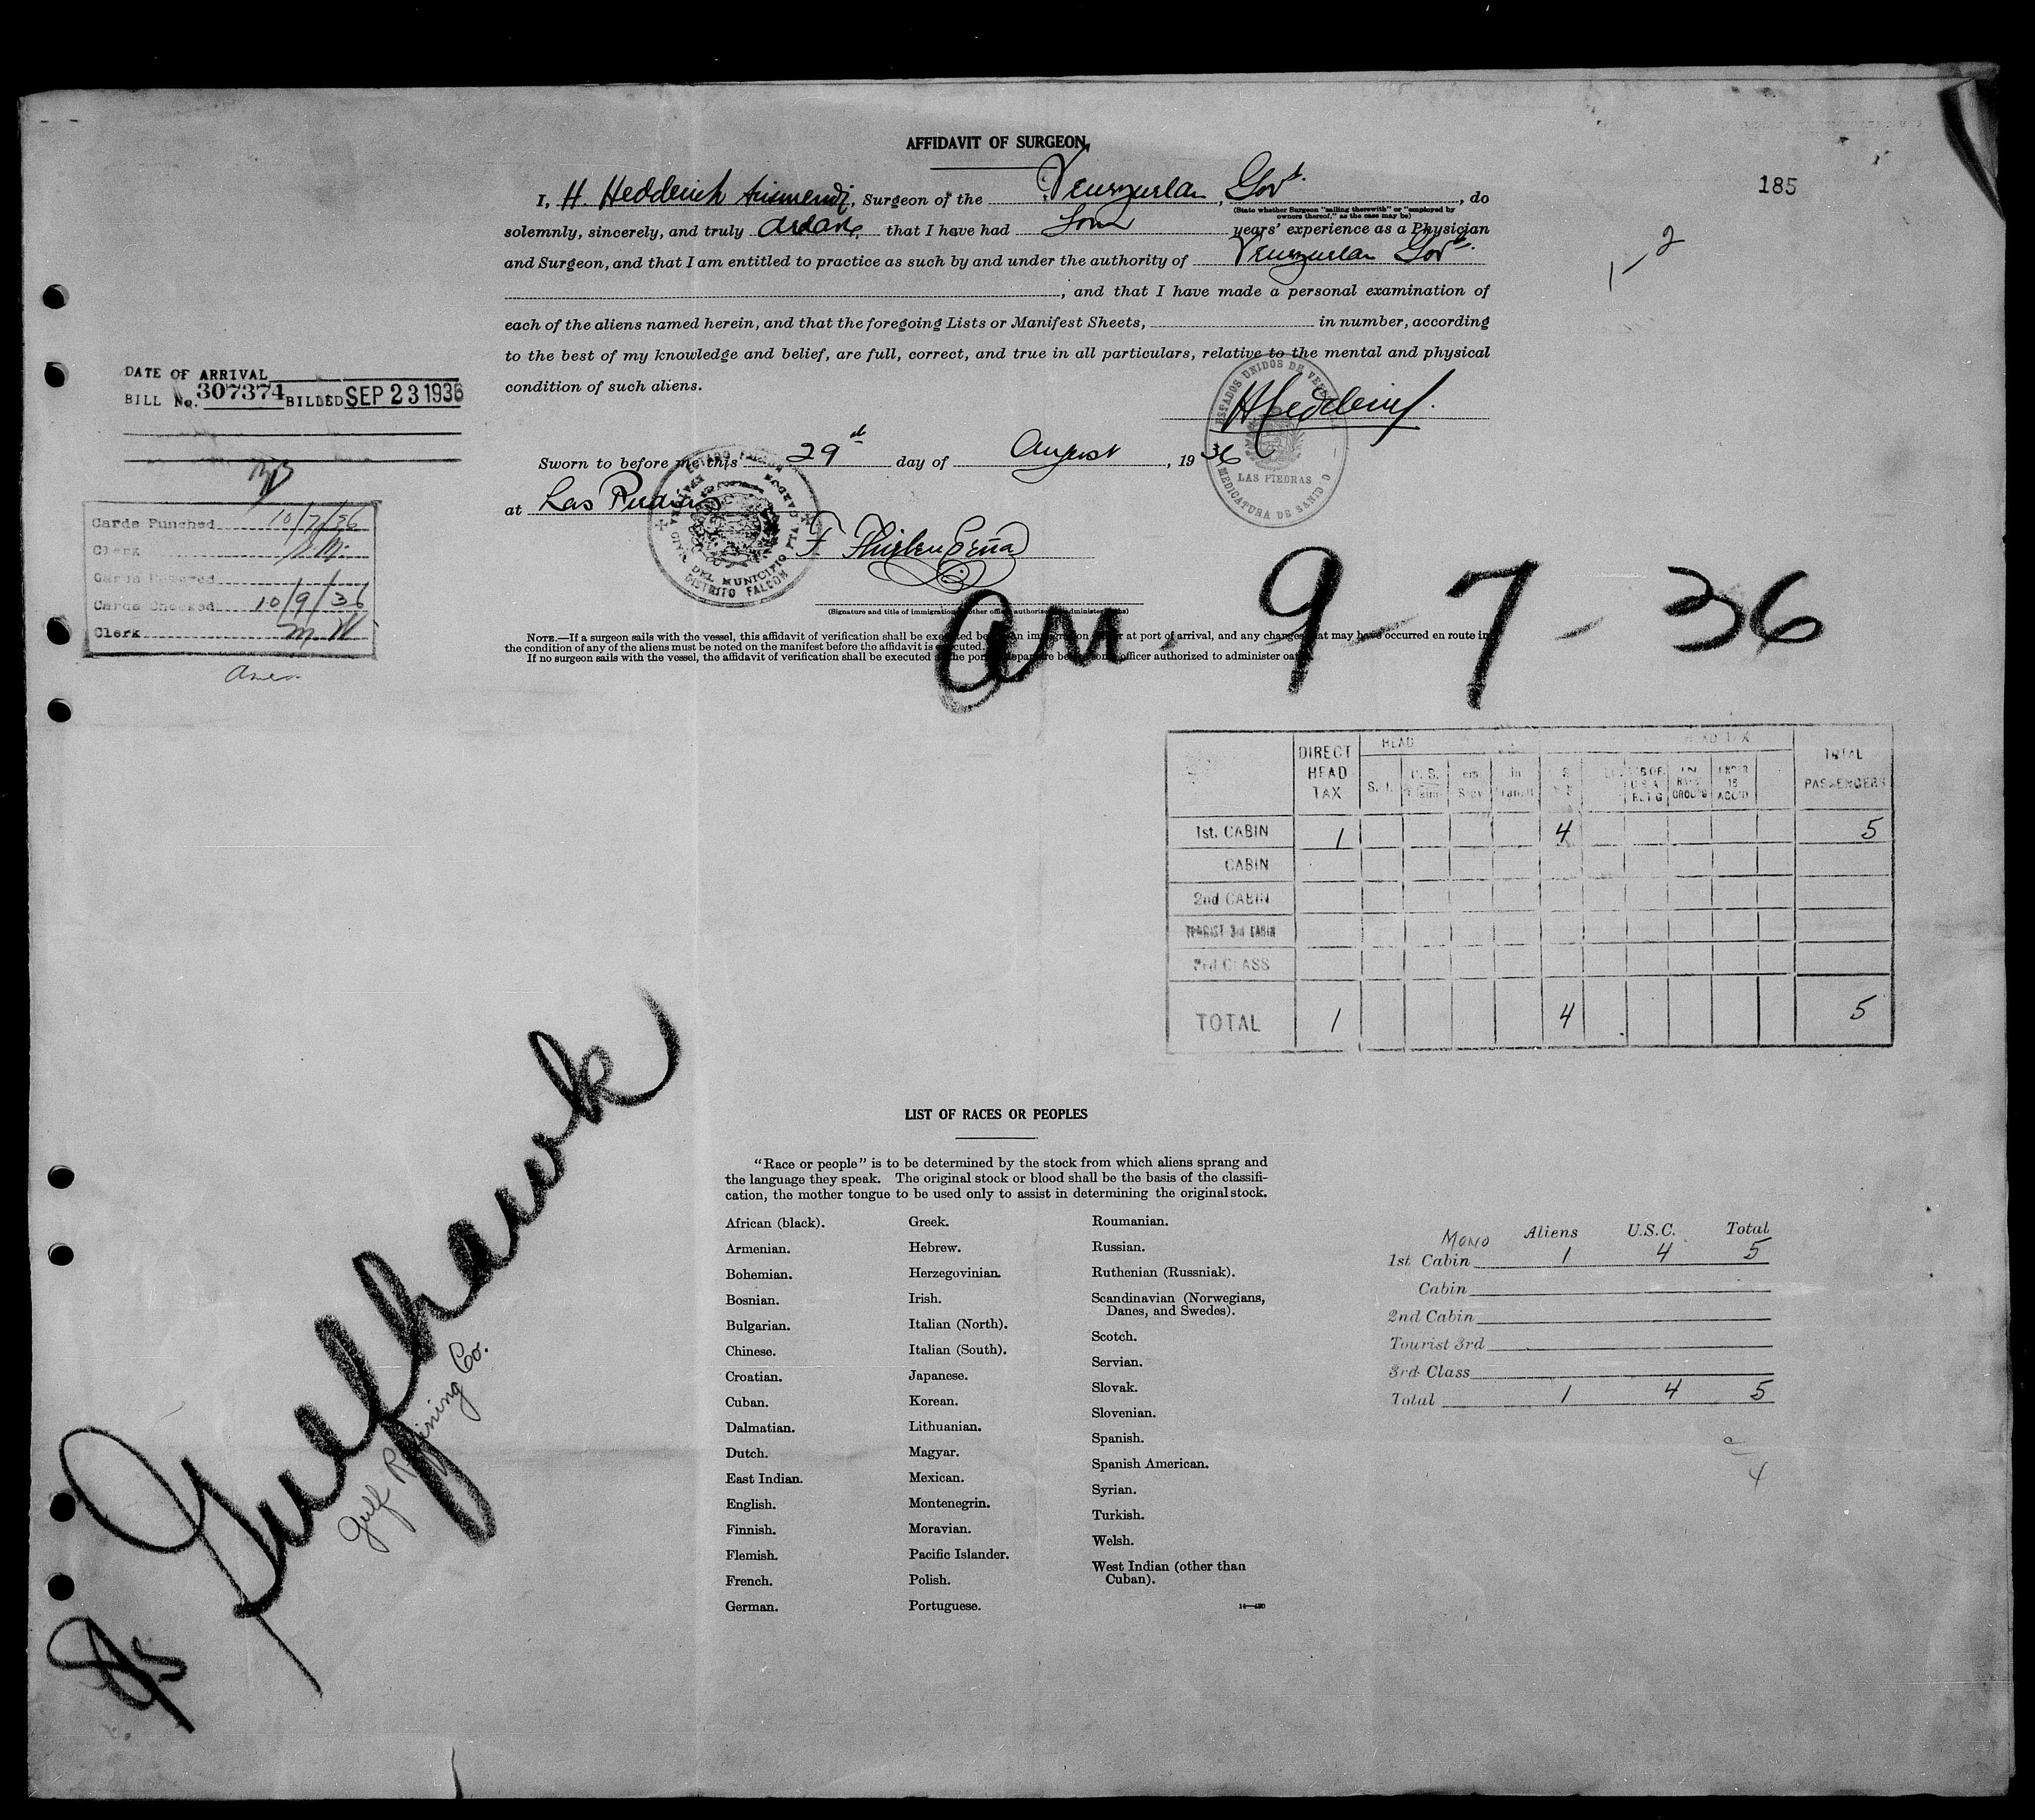 AFFIDAVIT OF SURGEON
185
I, H. Hedderich Arismendi, Surgeon of the Venezuelan, Govt., do
(State whether Surgeon "sailing therewith" or "employed by
owners thereof," as the case may be)
solemnly, sincerely, and truly declare that I have had four years' experience as a Physician
and Surgeon, and that I am entitled to practice as such by and under the authority of Venezuelan Govt.
, and that I have made a personal examination of
each of the aliens named herein, and that the foregoing Lists or Manifest Sheets, in number, according
to the best of my knowledge and belief, are full, correct, and true in all particulars, relative to the mental and physical
condition of such aliens.
1-2
DATE OF ARRIVAL
BILL No. 307374 BILLED SEP 23 1936
HHedderich
ESTADOS UNIDOS DE VENEZUELA
LAS PIEDRAS
MEDICATURA DE SANIDAD
Sworn to before me this 29th day of August, 1936
at Las Piedras
ESTADO FALCON
CIVIL DEL MUNICIPIO PTA CARDON
DISTRITO FALCON
(Signature and title of immigration or other officer authorized to administer oaths)
Cards Punched 10/7/36
Clerk
Cards
Cards Checked 10/9/36
Clerk M W
NOTE.—If a surgeon sails with the vessel, this affidavit of verification shall be executed before an immigration officer at port of arrival, and any changes that may have occurred en route in
the condition of any of the aliens must be noted on the manifest before the affidavit is executed.
If no surgeon sails with the vessel, the affidavit of verification shall be executed at the port of departure before some officer authorized to administer oaths.
arr. 9-7-36
DIRECT HEAD TAX HEAD HEAD TAX TOTAL PASSENGERS
IN UNDER 16 ACC'D
1st. CABIN 1 4 5
CABIN
2nd CABIN
TOURIST 3rd CABIN
3rd CLASS
TOTAL 1 4 5
SS Gulfhawk
Gulf Refining Co.
LIST OF RACES OR PEOPLES
"Race or people" is to be determined by the stock from which aliens sprang and
the language they speak. The original stock or blood shall be the basis of the classifi-
cation, the mother tongue to be used only to assist in determining the original stock.
African (black).
Armenian.
Bohemian.
Bosnian.
Bulgarian.
Chinese.
Croatian.
Cuban.
Dalmatian.
Dutch.
East Indian.
English.
Finnish.
Flemish.
French.
German.
Greek.
Hebrew.
Herzegovinian.
Irish.
Italian (North).
Italian (South).
Japanese.
Korean.
Lithuanian.
Magyar.
Mexican.
Montenegrin.
Moravian.
Pacific Islander.
Polish.
Portuguese.
Roumanian.
Russian.
Ruthenian (Russniak).
Scandinavian (Norwegians,
Danes, and Swedes).
Scotch.
Servian.
Slovak.
Slovenian.
Spanish.
Spanish American.
Syrian.
Turkish.
Welsh.
West Indian (other than
Cuban).
Mono Aliens U.S.C. Total
1st Cabin 1 4 5
Cabin
2nd Cabin
Tourist 3rd
3rd Class
Total 1 4 5
4